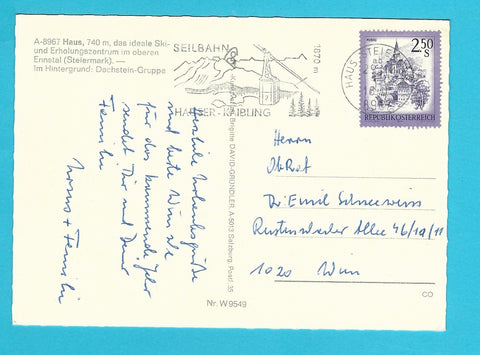 A-8967 Haus, 740 m, das ideale Ski-
und Erholungszentrum im oberen
Ennstal (Steiermark). —
Im Hintergrund: Dachstein-Gruppe
SEILBAHN
1870 m
HAUSER-KAIBLING
HAUS STEIER
2.50
S
REPUBLIK ÖSTERREICH
Herzliche
und beste Wünsche
für das kommende Jahr
sendet Dir und Deiner
Familie
+ Familie
Brigitte DAVID-GRÜNDLER, A-5013 Salzburg, Postf. 35
Herrn
ObRat
Dr. Emil Schneeweiss
Rustenschacher Allee 46/19/11
1020 Wien
Nr. W 9549
CO